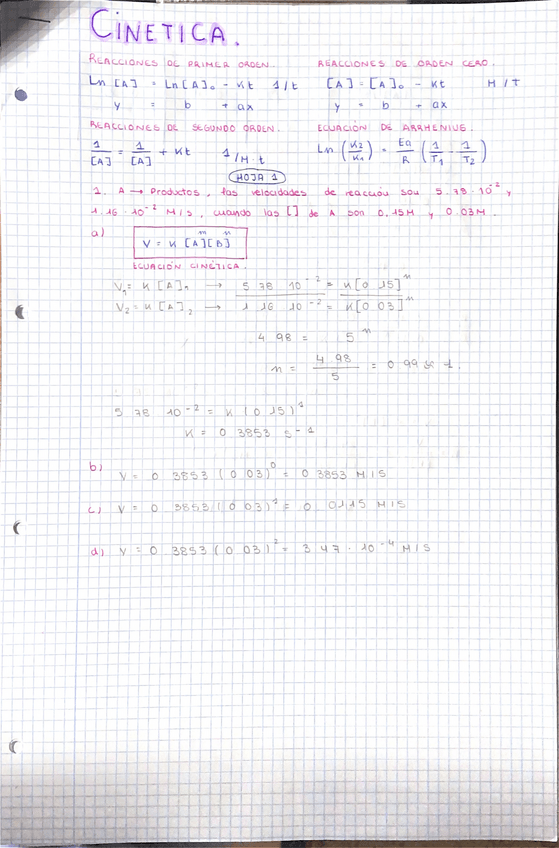 CINETICA.
REACCIONES DE PRIMER ORDEN. REACCIONES DE ORDEN CERO.
Ln [A] = Ln[A]₀ - Kt 1/t [A] = [A]₀ - Kt M/T
y = b + ax y = b + ax
REACCIONES DE SEGUNDO ORDEN. ECUACIÓN DE ARRHENIUS.
1/[A] = 1/[A] + Kt 1/M·t Ln (K2/K1) = Ea/R (1/T1 - 1/T2)
HOJA 1
1. A → Productos, las velocidades de reacción son 5.78·10⁻² y
1.16·10⁻² M/S, cuando las [] de A son 0,15M y 0.03M.
a) V = K [A]ᵐ[B]ⁿ
ECUACIÓN CINÉTICA.
V₁ = K [A]₁ → 5 78 10⁻² = K[0 15]ⁿ
V₂ = K [A]₂ → 1 16 10⁻² = K[0 03]ⁿ
4 98 = 5ⁿ
n = 4 98/5 = 0 99 ≈ 1.
5 78 10⁻² = K (0 15)¹
K = 0 3853 s⁻¹
b) V = 0 3853 (0 03)⁰ = 0 3853 M/S
c) V = 0 3853 (0 03)¹ = 0 0115 M/S
d) V = 0 3853 (0 03)² = 3 47 · 10⁻⁴ M/S